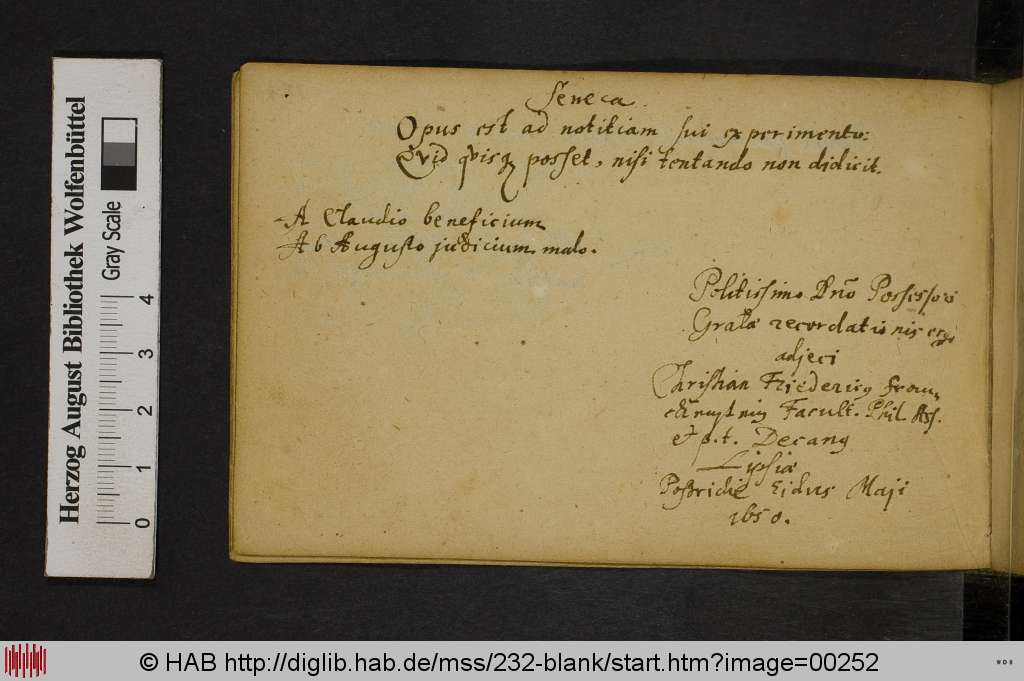 Herzog August Bibliothek Wolfenbüttel
Gray Scale
0 1 2 3 4
Seneca.
Opus est ad notitiam sui experimento:
Qvid qvisq; posset, nisi tentando non didicit.
A Claudio beneficium
Ab Augusto judicium malo.
Politissimo Dnõ Possessori
Gratæ recordationis ergo
adjeci
Christian Friedericg
Facult. Phil. Ass.
& p.t. Decang
Lipsiæ
Postridie Eidus Maji
1650.
© HAB http://diglib.hab.de/mss/232-blank/start.htm?image=00252